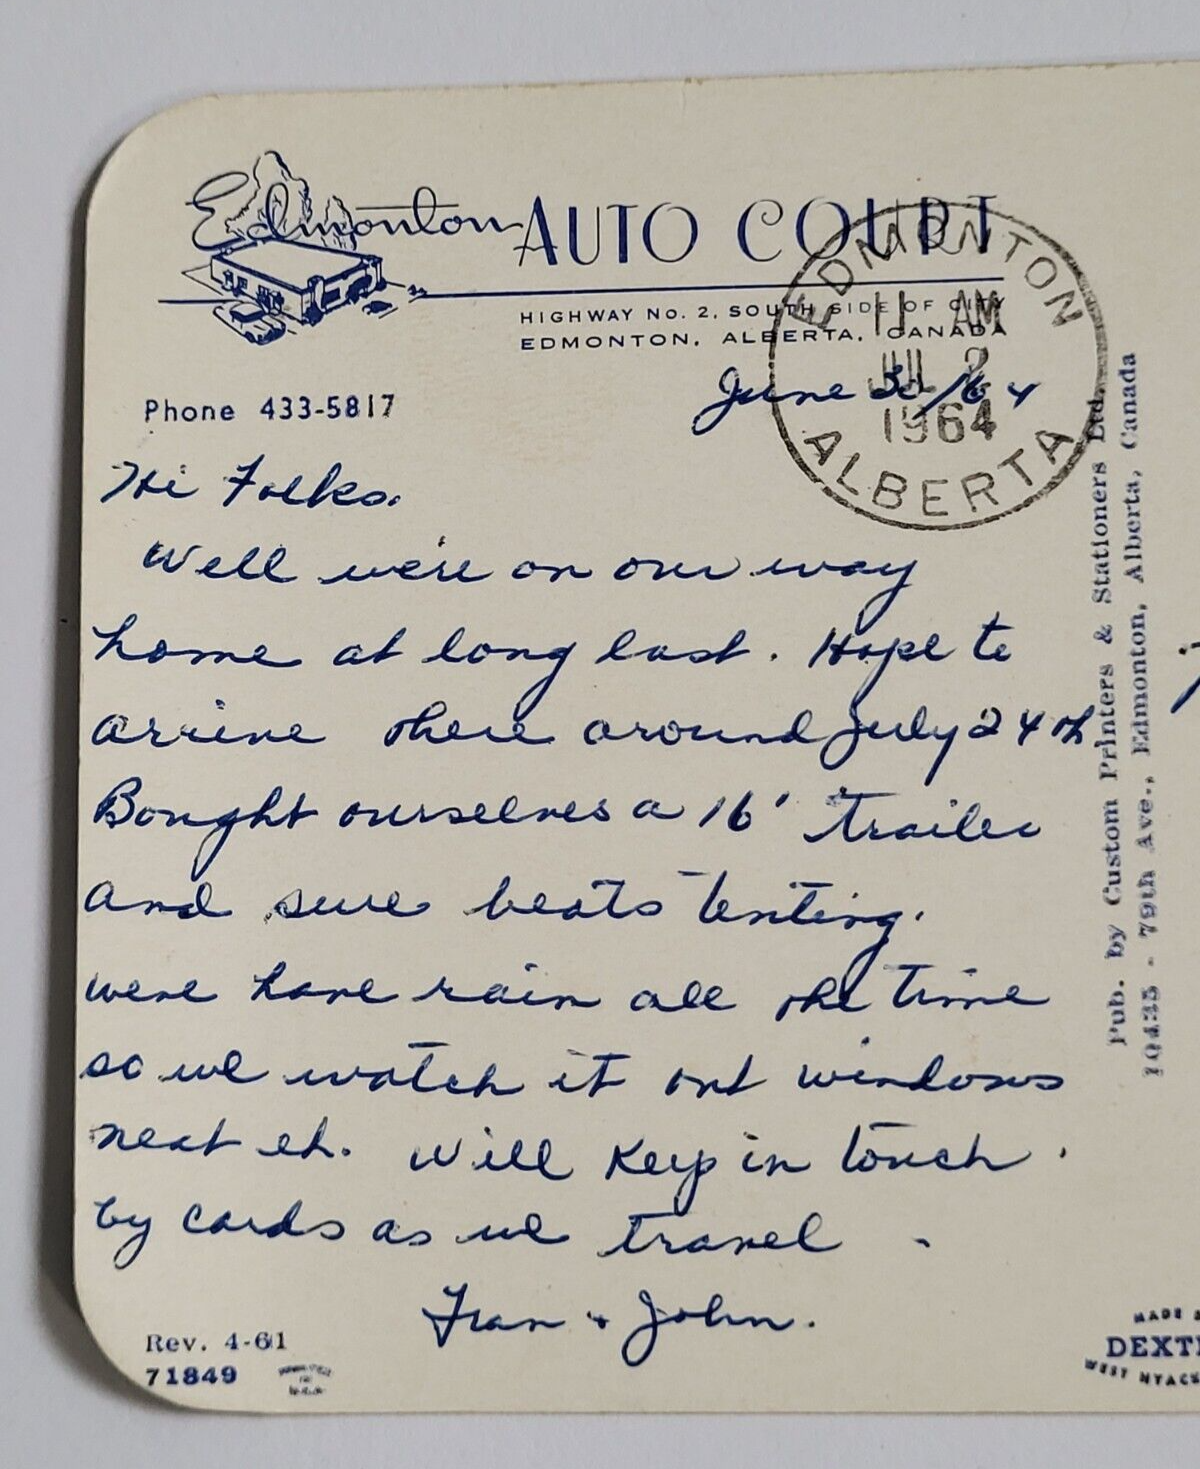 Edmonton AUTO COURT
HIGHWAY No. 2, SOUTH SIDE OF CITY
EDMONTON, ALBERTA, CANADA
Phone 433-5817
June 30/64
EDMONTON
11 AM
JUL 2
1964
ALBERTA
Hi Folks.
Well we're on our way
home at long last. Hope to
arrive there around July 24th
Bought ourselves a 16' trailer
and sure beats tenting.
were have rain all the time
so we watch it out windows
neat eh. Will keep in touch.
by cards as we travel.
Fran + John.
Rev. 4-61
71849
Pub. by Custom Printers & Stationers Ltd.
10435 - 79th Ave., Edmonton, Alberta, Canada
MADE
DEXT
WEST NYACK